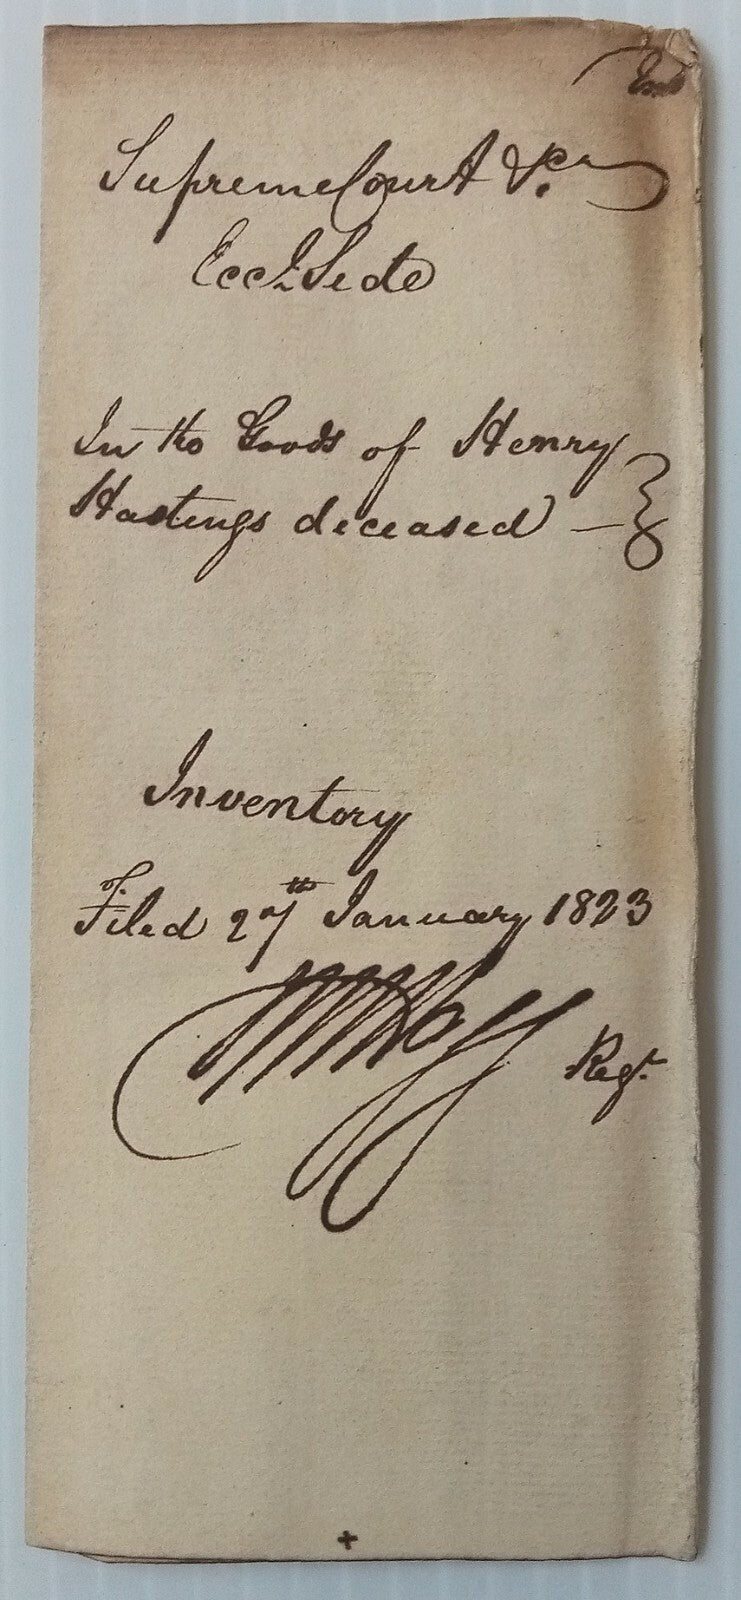 Supreme Court &c.
Eccl. Side
In the Goods of Henry
Hastings deceased
Inventory
Filed 27th January 1823
Regr.